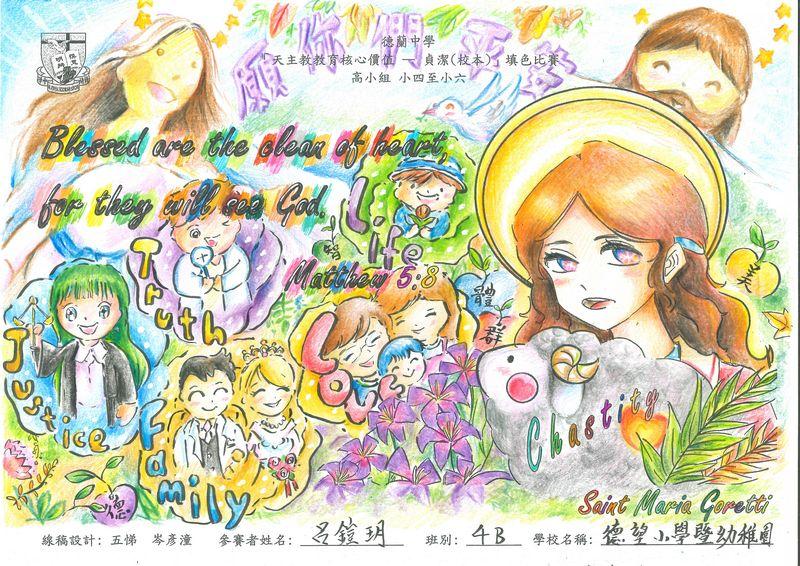 德蘭中學
「天主教教育核心價值 — 貞潔(校本)」填色比賽
高小組 小四至小六
願你們平安
Blessed are the clean of heart,
for they will see God.
Matthew 5:8
Life
Truth
Justice
Love
Family
體
群
美
德
Chastity
Saint Maria Goretti
線稿設計: 五悌 岑彥潼 參賽者姓名: 呂鎧玥 班別: 4B 學校名稱: 德望小學暨幼稚園